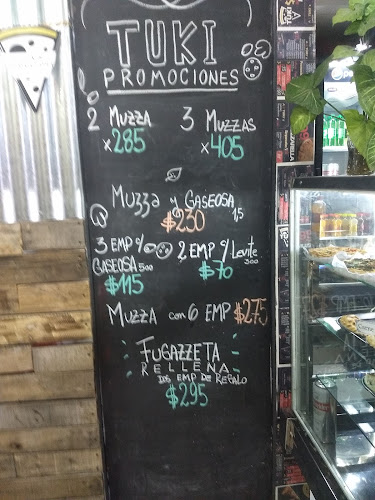 TUKI
PROMOCIONES
2 MUZZA 3 MUZZAS
x285 x405
MUZZA y GASEOSA 1,5
$230
3 EMP c/ 2 EMP c/ Levite
GASEOSA 500 300
$115 $70
MUZZA con 6 EMP $275
FUGAZZETA
RELLENA
DOS EMP DE REGALO
$295